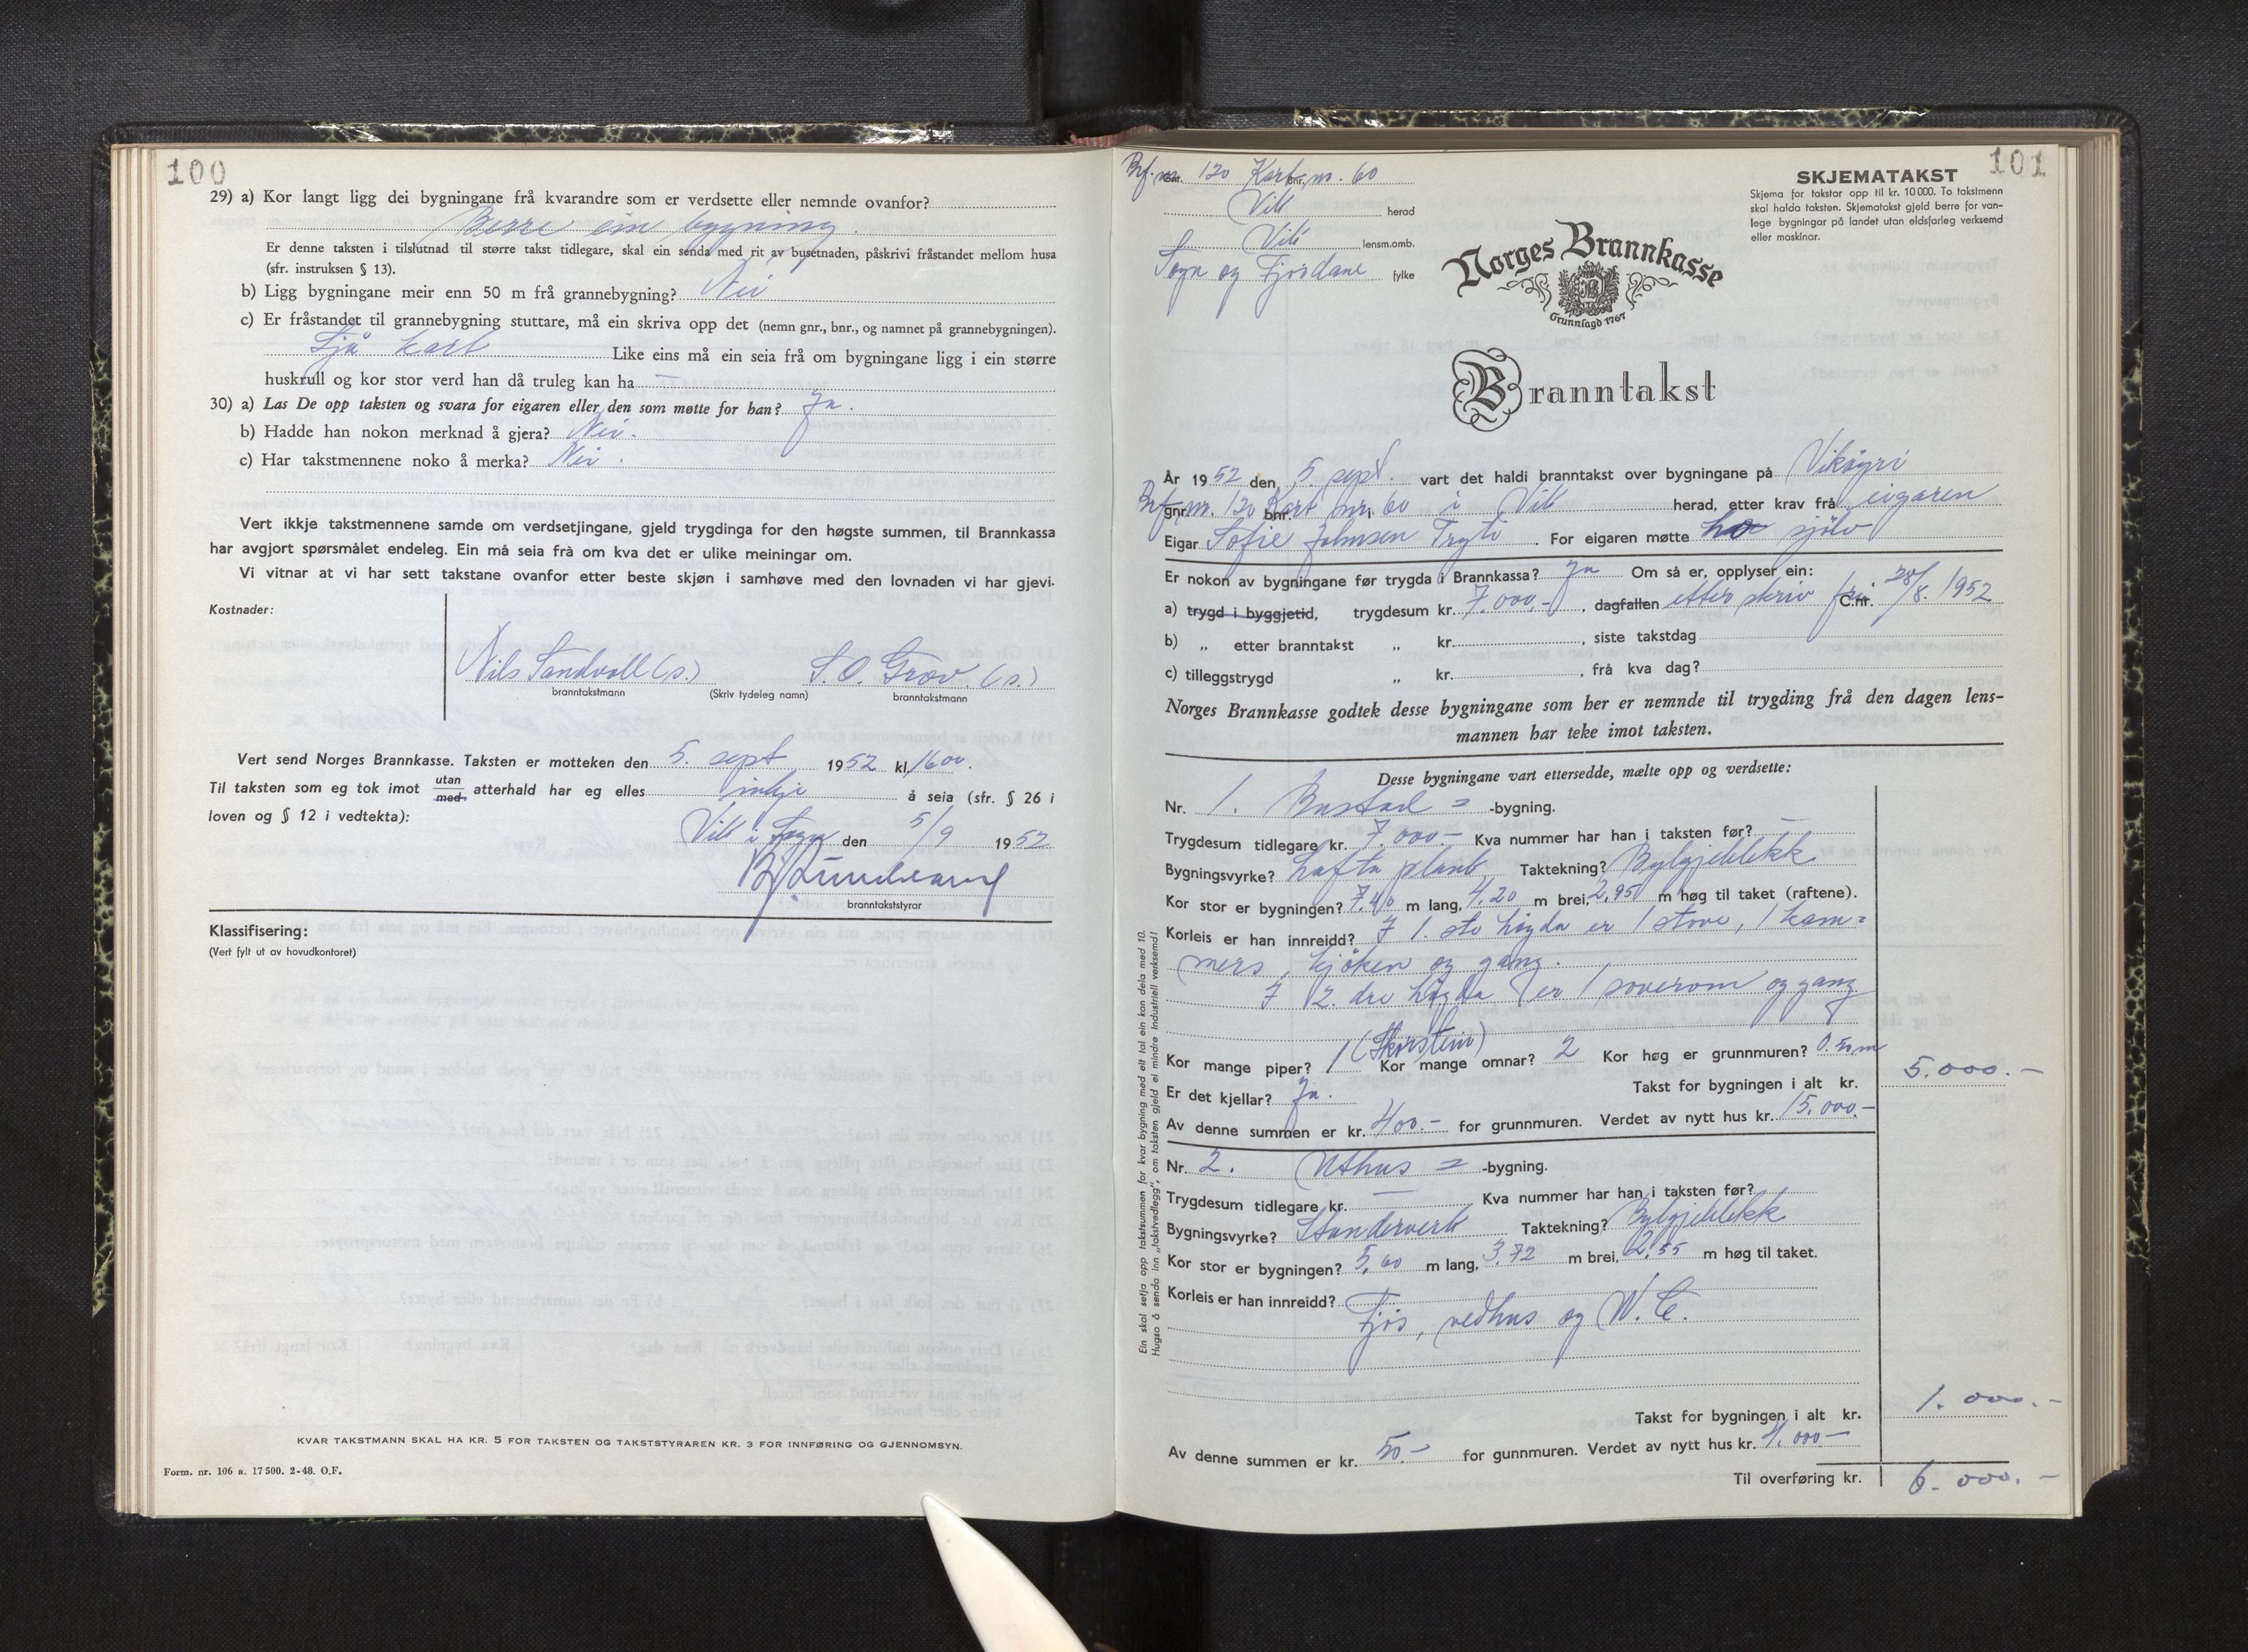 100
29) a) Kor langt ligg dei bygningane frå kvarandre som er verdsette eller nemnde ovanfor?
Berre ein bygning.
Er denne taksten i tilslutnad til større takst tidlegare, skal ein senda med rit av busetnaden, påskrivi fråstandet mellom husa
(sfr. instruksen § 13).
b) Ligg bygningane meir enn 50 m frå grannebygning? Nei
c) Er fråstandet til grannebygning stuttare, må ein skriva opp det (nemn gnr., bnr., og namnet på grannebygningen).
Sjå kart Like eins må ein seia frå om bygningane ligg i ein større
huskrull og kor stor verd han då truleg kan ha —
30) a) Las De opp taksten og svara for eigaren eller den som møtte for han? Ja.
b) Hadde han nokon merknad å gjera? Nei.
c) Har takstmennene noko å merka? Nei.
Vert ikkje takstmennene samde om verdsetjingane, gjeld trygdinga for den høgste summen, til Brannkassa
har avgjort spørsmålet endeleg. Ein må seia frå om kva det er ulike meiningar om.
Vi vitnar at vi har sett takstane ovanfor etter beste skjøn i samhøve med den lovnaden vi har gjevi.
Kostnader:
Nils Sandvoll (s.) S. O. Grov. (s.)
branntakstmann (Skriv tydeleg namn) branntakstmann
Vert send Norges Brannkasse. Taksten er motteken den 5. sept 1952 kl. 1600.
Til taksten som eg tok imot utan/med atterhald har eg elles inkje å seia (sfr. § 26 i
loven og § 12 i vedtekta):
Vik i Sogn den 5/9 1952
branntakststyrar
Klassifisering:
(Vert fylt ut av hovudkontoret)
KVAR TAKSTMANN SKAL HA KR. 5 FOR TAKSTEN OG TAKSTSTYRAREN KR. 3 FOR INNFØRING OG GJENNOMSYN.
Form. nr. 106 a. 17 500. 2-48. O.F.
101
Brf. nr. 120 Kart nr. 60
Vik herad
Vik lensm.omb.
Sogn og Fjordane fylke
SKJEMATAKST
Skjema for takstar opp til kr. 10 000. To takstmenn
skal halda taksten. Skjematakst gjeld berre for van-
lege bygningar på landet utan eldsfarleg verksemd
eller maskinar.
Norges Brannkasse
Grunnlagd 1767
Branntakst
År 1952 den 5 sept. vart det haldi branntakst over bygningane på Vikøyri
Brf. gnr. nr. 120 bnr. Kart nr. 60 i Vik herad, etter krav frå eigaren
Eigar Sofie Johnsen Tryti. For eigaren møtte ho sjølv
Er nokon av bygningane før trygda i Brannkassa? Ja Om så er, opplyser ein:
a) trygd i byggjetid, trygdesum kr. 7.000,-, dagfallen etter skriv frå C.nr. 28/8. 1952
b) „ etter branntakst „ kr. , siste takstdag
c) tilleggstrygd „ kr. , frå kva dag?
Norges Brannkasse godtek desse bygningane som her er nemnde til trygding frå den dagen lens-
mannen har teke imot taksten.
Desse bygningane vart ettersedde, mælte opp og verdsette:
Nr. 1. Bustad = -bygning.
Trygdesum tidlegare kr. 7.000- Kva nummer har han i taksten før? —
Bygningsvyrke? Lafta plank Taktekning? Bylgjeblekk
Kor stor er bygningen? 7,40 m lang, 4,20 m brei, 2,95 m høg til taket (raftene).
Korleis er han innreidd? I 1. ste høgda er 1 stove, 1 kam=
mers, kjøken og gang.
I 2. dre høgda er 1 soverom og gang
Kor mange piper? 1 (Skorstein) Kor mange omnar? 2 Kor høg er grunnmuren? 0.50 m
Er det kjellar? Ja. Takst for bygningen i alt kr. 5.000.-
Av denne summen er kr. 400.- for grunnmuren. Verdet av nytt hus kr. 15.000.-
Nr. 2. Uthus = -bygning.
Trygdesum tidlegare kr. — Kva nummer har han i taksten før?
Bygningsvyrke? Standerverk Taktekning? Bylgjeblekk
Kor stor er bygningen? 5,60 m lang, 3,72 m brei, 2,55 m høg til taket.
Korleis er han innreidd?
Fjøs, vedhus og W.C.
Takst for bygningen i alt kr. 1.000.-
Av denne summen er kr. 50.- for gunnmuren. Verdet av nytt hus kr. 4.000-
Til overføring kr. 6.000.-
Ein skal setja opp takstsummen for kvar bygning med eit tal ein kan dela med 10.
Hugsa å senda inn „takstvedlegg", om taksten gjeld ei mindre industriell verksemd!